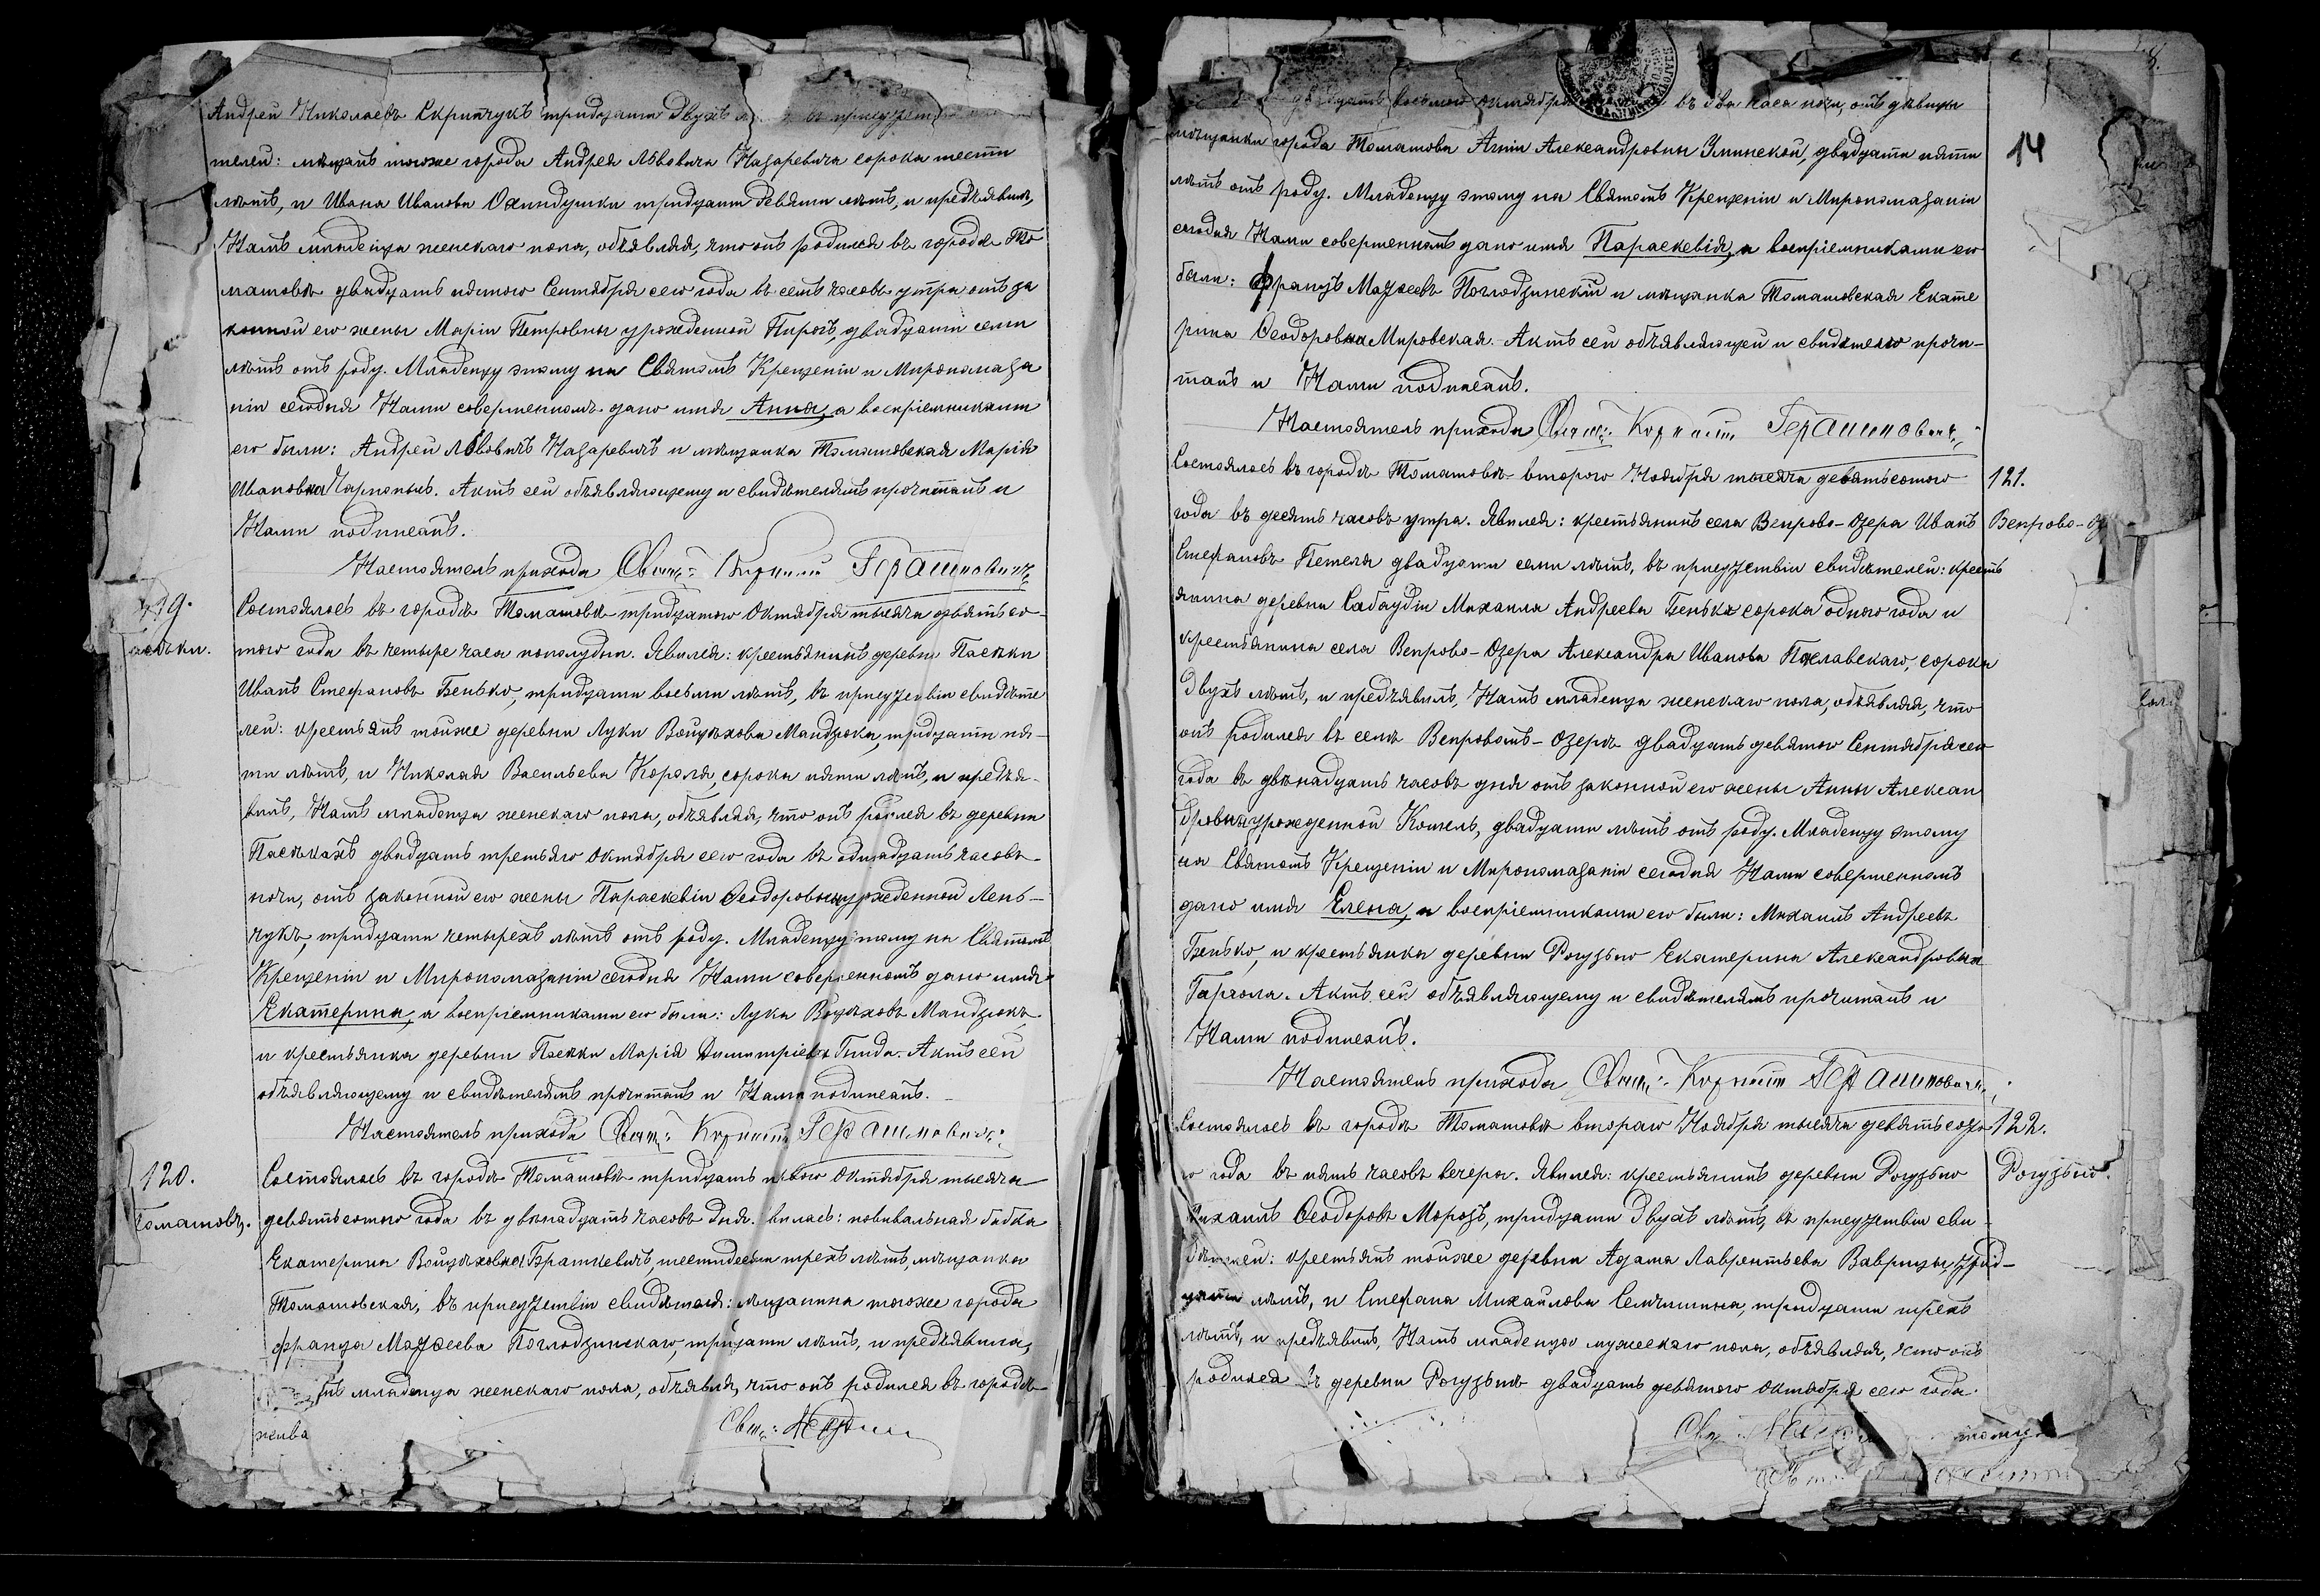 Андрей Николаевъ Скрипчукъ тридцати двухъ въ присутств
телей: мѣщанъ тогоже города Андрея Львовича Назаревича сорока шести
лѣтъ, и Ивана Иванова тридцати девяти лѣтъ, и предъявилъ,
Намъ младенца женскаго пола, объявляя, что онъ родился въ городѣ То
машовѣ двадцать пятого Сентября сего года въ семь часовъ утра отъ за
конной его жены Маріи Петровны урожденной Пирогъ, двадцати семи
лѣтъ отъ роду. Младенцу этому на Святомъ Крещеніи и Миропомаза
ніи сегодня Нами совершенномъ дано имя Анна, а воспріемниками
его были: Андрей Львовичъ Назаревичъ и мѣщанка Томашовская Марія
Ивановна Актъ сей объявляющему и свидѣтелямъ прочитанъ и
Нами подписанъ.
Настоятель прихода Свящ: Корнилій Герашиновичъ
119. Состоялось въ городѣ Томашовѣ тридцатого Октября тысяча девятьсо-
Пасѣки. того года въ четыре часа пополудни. Явился: крестьянинъ деревни Пасѣки
Иванъ Стефановъ Бенько, тридцати восьми лѣтъ, въ присутствіи свидѣте
лей: крестьянъ тойже деревни Луки Войцѣхова Мандзюка, тридцати пя-
ти лѣтъ, и Николая Васильева Короля, сорока пяти лѣтъ, и предъя-
вилъ, Намъ младенца женскаго пола, объявляя, что онъ родился въ деревни
Пасѣкахъ двадцать третьяго Октября сего года въ одинадцать часовъ
ночи, отъ законной его жены Параскевіи Ѳеодоровны урожденной Лень-
чукъ, тридцати четырехъ лѣтъ отъ роду. Младенцу этому на Святомъ
Крещеніи и Миропомазаніи сегодня Нами совершенномъ дано имя
Екатерина, а воспріемниками его были: Лука Войцѣховъ Мандзюкъ
и крестьянка деревни Пасѣки Марія Димитріева Гнида. Актъ сей
объявляющему и свидѣтелямъ прочитанъ и Нами подписанъ.
Настоятель прихода Свящ: Корнилій Герашиновичъ
120. Состоялось въ городѣ Томашовѣ тридцать перваго Октября тысяча
Томашовъ. девятьсотого года въ двѣнадцать часовъ дня. вилась: повивальная бабка
Екатерина Войцѣховна Браткевичъ, шестидесяти трехъ лѣтъ, мѣщанка
Томашовская, въ присутствіи свидѣтеля: мѣщанина тогоже города
Франца Матѳеева Поглодзинскаго, тридцати лѣтъ, и предъявила,
мъ младенца женскаго пола, объявляя, что онъ родился въ городѣ
Свящ:
двадцать восьмого Октября въ два часа ночи, отъ дѣвицы
мѣщанки города Томашова Анны Александровны Улинской, двадцати пяти
14
лѣтъ отъ роду. Младенцу этому на Святомъ Крещеніи и Миропомазаніи
сегодня Нами совершенномъ дано имя Параскевія, а воспріемниками его
были: Францъ Матѳеевъ Поглодзинскій и мѣщанка Томашовская Екате
рина Ѳеодоровна Мировская. Актъ сей объявляющей и свидѣтелю прочи-
танъ и Нами подписанъ.
Настоятель прихода, Свящ: Корнилій Герашиновичъ
Состоялось въ городѣ Томашовѣ второго Ноября тысяча девятьсотого 121.
года въ десять часовъ утра. Явился: крестьянинъ села Вепрово-Озера Иванъ Вепрово-Оз
Стефановъ Петеля двадцати семи лѣтъ, въ присутствіи свидѣтелей: кресть
янина деревни Сабаудіи Михаила Андреева Бенька сорока одного года и
крестьянина села Вепрово-Озера Александра Иванова Пославскаго, сорока
двухъ лѣтъ, и предъявилъ, Намъ младенца женскаго пола, объявляя, что
онъ родился въ селѣ Вепровомъ-Озерѣ двадцать девятого Сентября сего
года въ двѣнадцать часовъ дня отъ законной его жены Анны Алексан
дровны урожденной Кошель, двадцати лѣтъ отъ роду. Младенцу этому
на Святомъ Крещеніи и Миропомазаніи сегодня Нами совершенномъ
дано имя Елена, а воспріемниками его были: Михаилъ Андреевъ
Бенько, и крестьянка деревни Рогузьно Екатерина Александровна
Гаргола. Актъ сей объявляющему и свидѣтелямъ прочитанъ и
Нами подписанъ.
Настоятель прихода Свящ: Корнилій Герашиновичъ
Состоялось въ городѣ Томашовѣ второго Ноября тысяча девятьсото 122.
го года въ пять часовъ вечера. Явился: крестьянинъ деревни Рогузьно Рогузьно.
Михаилъ Ѳеодоровъ Морозъ, тридцати двухъ лѣтъ, въ присутствіи сви
дѣтелей: крестьянъ тойже деревни Адама Лаврентьева Ваврицы, трид-
цати лѣтъ, и Стефана Михайлова Семчишина, тридцати трехъ
лѣтъ, и предъявилъ, Намъ младенца мужескаго пола, объявляя, что онъ
родился въ деревни Рогузьнѣ двадцать девятого Октября сего года